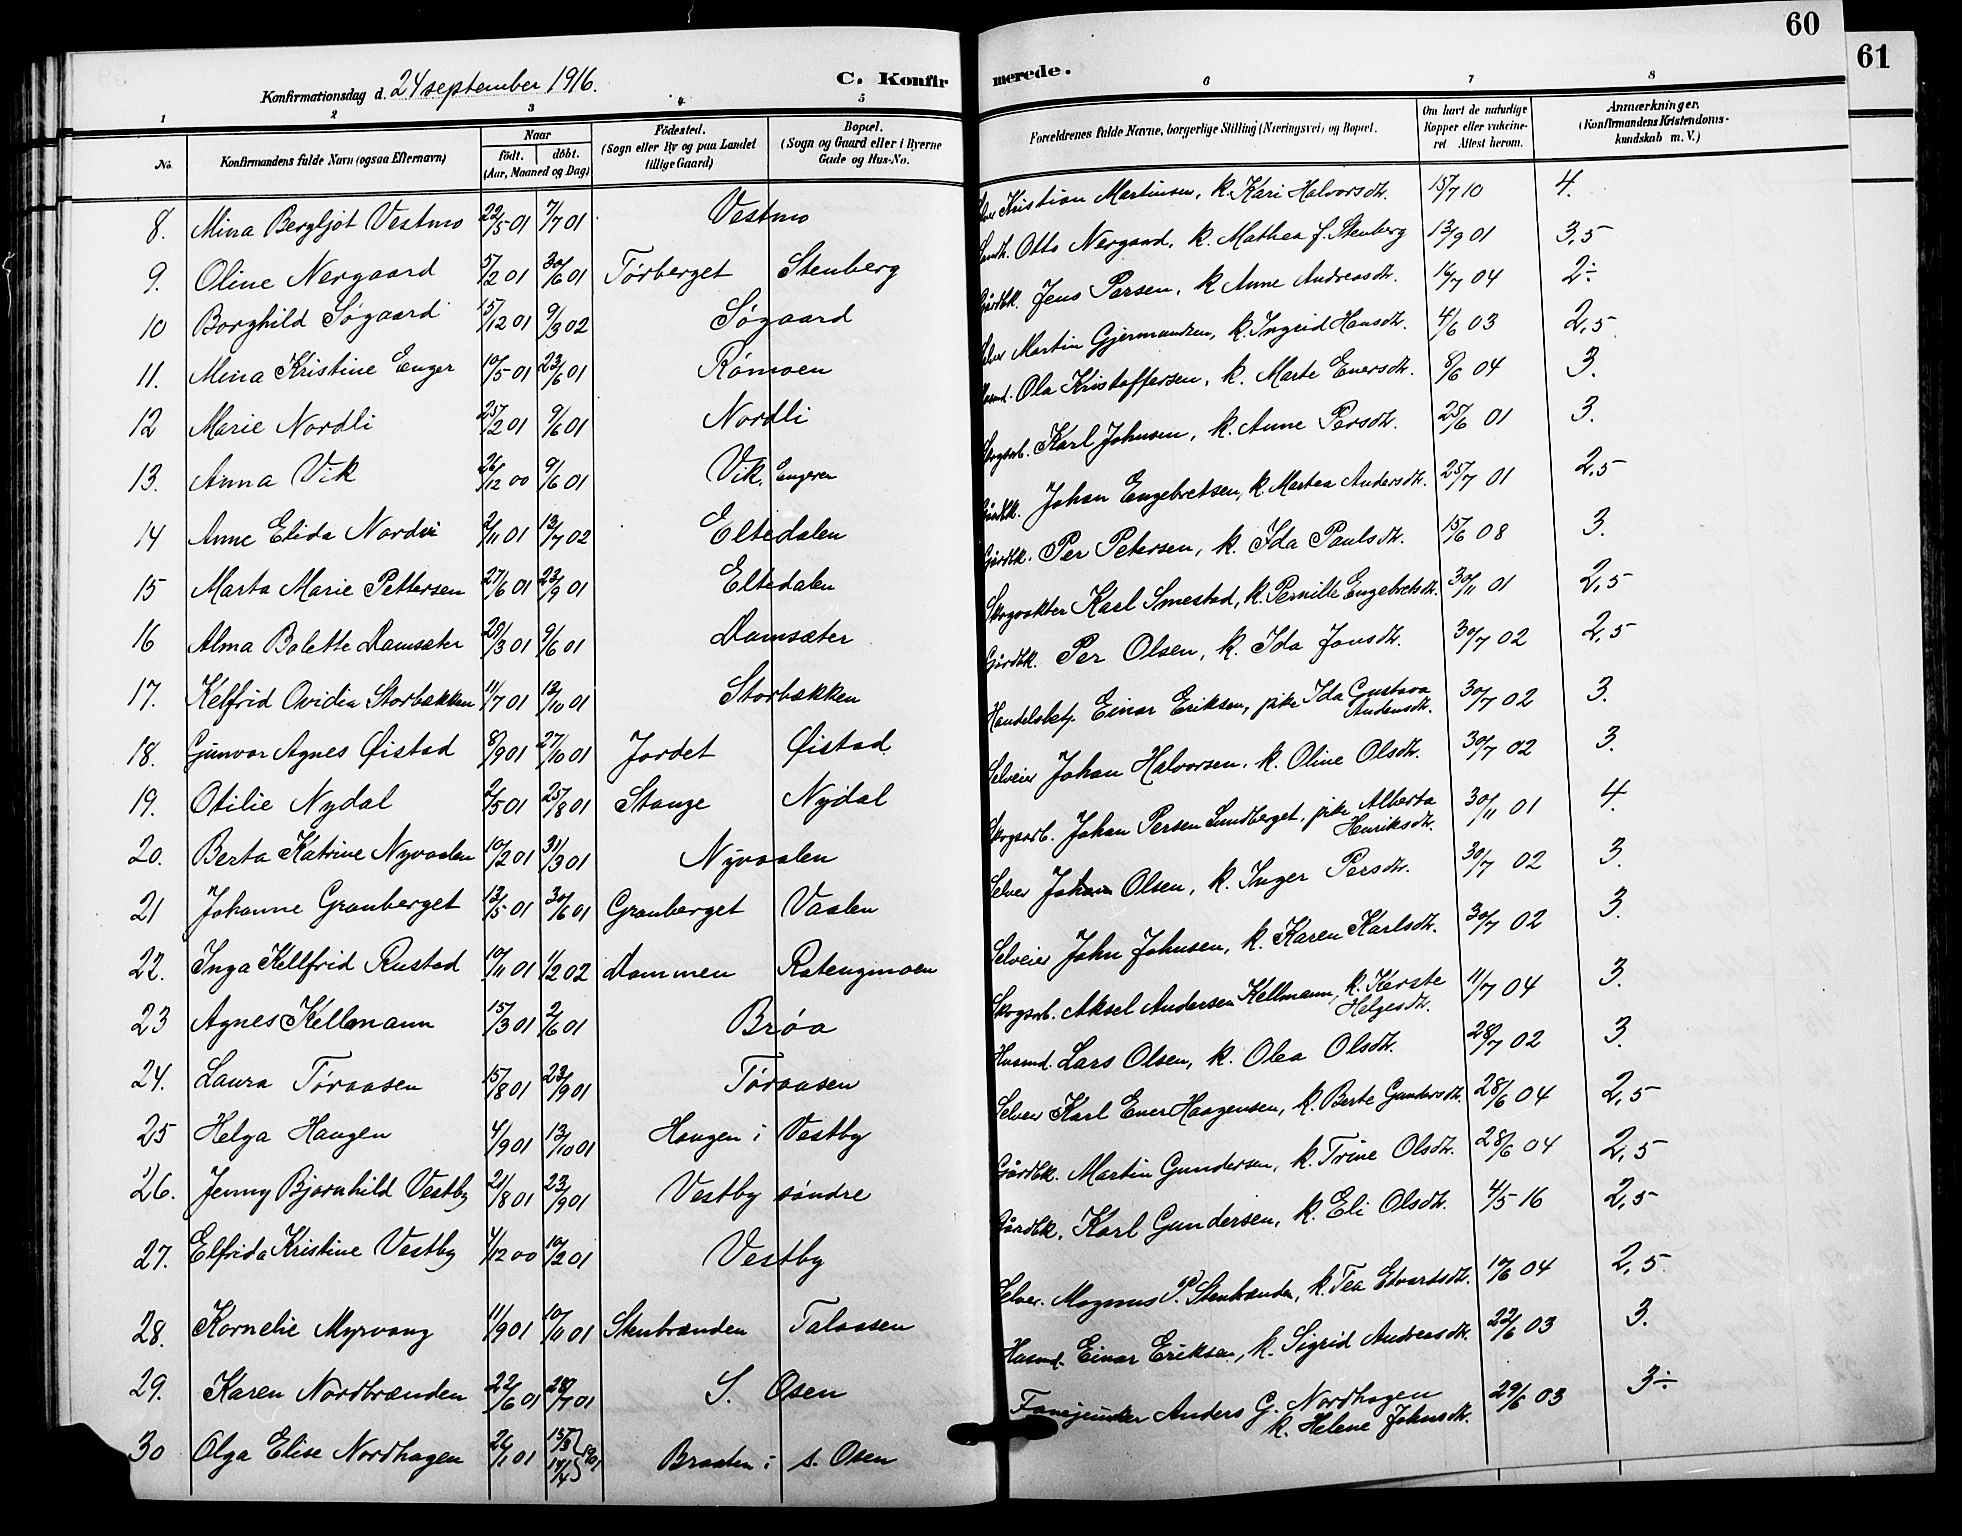 60
61
Konfirmationsdag d. 24 september 1916.
C. Konfirmerede.
1 2 3 4 5 6 7 8
No. Konfirmandens fulde Navn (ogsaa Efternavn) Naar født. døbt. (Aar, Maaned og Dag) Fødested. (Sogn eller By og paa Landet tillige Gaard) Bopæl. (Sogn og Gaard eller i Byerne Gade og Hus-No. Forældrenes fulde Navne, borgerlige Stilling (Næringsvei) og Bopæl. Om havt de naturlige Kopper eller vakcineret Attest herom. Anmærkninger, (Konfirmandens Kristendomskundskab m. V.)
8. Mina Bergljot Vestmo 22/5 01 7/7 01 Vestmo Kristian Martinsen, k. Kari Halvorsdtr. 15/7 10 4.
9. Oline Nergaard 5/2 01 30/6 01 Tørberget Stenberg Otto Nergaard, k. Mathea f. Stenberg 13/9 01 3,5
10 Borghild Søgaard 15/12 01 9/3 02 Søgaard Gårdbk. Jens Persen, k Anne Andreasdtr. 16/7 04 2÷
11. Mina Kristine Enger 10/5 01 23/6 01 Rømoen Selvei Martin Gjermundsen, k. Ingrid Hansdtr. 4/6 03 2,5
12 Marie Nordli 25/2 01 9/6 01 Nordli Husmd. Ola Kristoffersen, k. Marte Enersdtr. 8/6 04 3.
13. Anna Vik 26/12 00 9/6 01 Vik, Engeren Skogsarb. Karl Johnsen, k. Anne Persdtr. 25/6 01 3.
14 Anne Elida Nordvi 2/11 01 13/7 02 Eltedalen Gårdbk. Johan Engebretsen, k Martea Andersdtr. 25/7 01 2,5
15 Marta Marie Pettersen 27/6 01 23/9 01 Eltedalen Gårdbk. Per Petersen, k. Ida Paulsdtr. 15/6 08 3.
16 Alma Bolette Damsæter 29/3 01 9/6 01 Damsæter Skogvakter Karl Smestad, k. Pernille Engebretsdtr. 30/11 01 2,5
17. Kelfrid Ovidia Storbækken 11/7 01 13/10 01 Storbækken Gårdbk. Per Olsen, k. Ida Jonsdtr. 30/7 02 2,5
18. Gunvor Agnes Øistad 8/9 01 27/10 01 Jordet Øistad Handelsbetj. Einar Eriksen, pike Ida Gustava Andersdtr. 30/7 02 3.
19. Otilie Nydal 2/5 01 25/8 01 Stange Nydal Selveier Johan Halvorsen, k. Oline Olsdtr. 30/7 02 3.
20. Berta Katrine Nyvaalen 10/2 01 31/3 01 Nyvaalen Skogsarb. Johan Persen Lundberget, pike Alberta Henriksdtr. 30/11 01 4.
21 Johanne Granberget 13/5 01 30/6 01 Granberget Vaalen Selvei Johan Olsen, k. Inger Persdtr. 30/7 02 3.
22. Inga Kellfrid Rustad 10/11 01 1/2 02 Dammen Rotengmoen Selveier John Johnsen, k. Karen Karlsdtr. 30/7 02 3.
23 Agnes Kellmann 15/3 01 2/6 01 Brøa Skogsarb. Aksel Andersen Kellmann, k. Kerste Helgesdtr. 11/7 04 3.
24. Laura Tøraasen 15/8 01 23/9 01 Tøraasen Husmd. Lars Olsen, k. Olea Olsdtr. 28/7 02 3.
25 Helga Haugen 4/9 01 13/10 01 Haugen i Vestby Selvei Karl Ener Haagensen, k. Berte Gundersdtr. 28/6 04 2,5
26. Jenny Bjørnhild Vestby 21/8 01 23/9 01 Vestby søndre Gårdbk. Martin Gundersen, k. Trine Olsdtr. 28/6 04 2,5
27. Elfrida Kristine Vestby 4/12 00 10/2 01 Vestby Gårdbk. Karl Gundersen, k. Eli Olsdtr. 4/5 16 2,5
28. Kornelie Myrvang 11/9 01 10/11 01 Stenbrænden Talaasen Selvei. Magnus P. Stenbrænden, k. Tea Edvardsdtr. 10/6 04 2,5
29. Karen Nordbrænden 22/6 01 28/7 01 S. Osen Husmd. Einar Eriksen, k. Sigrid Andreasdtr. 22/6 03 3.
30 Olga Elise Nordhagen 26/1 01 Braaten i s. Osen Fanejunker Anders G. Nordhagen k. Helene Johnsdtr. 29/6 03 3÷